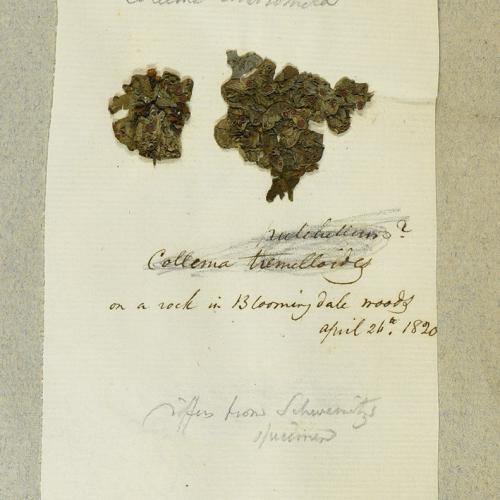 Collema
pulchellum?
Collema tremelloides
on a rock in Bloomingdale woods
april 26th. 1820
differs from Schweinitz
specimen